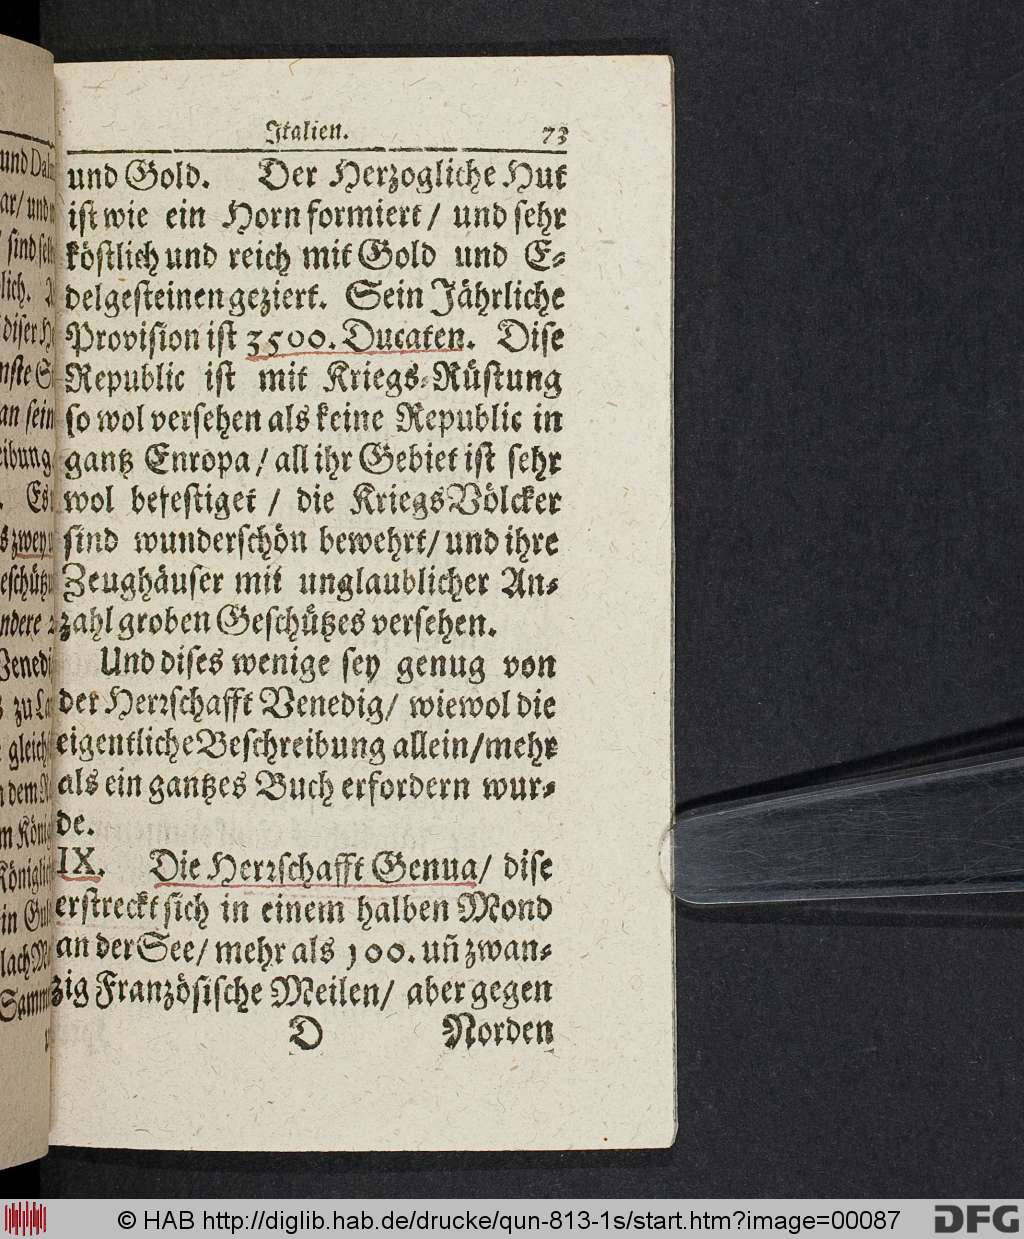 Italien. 73
und Gold. Der Herzogliche Hut
ist wie ein Horn formiert / und sehr
köstlich und reich mit Gold und E-
delgesteinen geziert. Sein Jährliche
Provision ist 3500. Ducaten. Dise
Republic ist mit Kriegs-Rüstung
so wol versehen als keine Republic in
gantz Enropa / all ihr Gebiet ist sehr
wol befestiget / die KriegsVölcker
sind wunderschön bewehrt / und ihre
Zeughäuser mit unglaublicher An-
zahl groben Geschützes versehen.
Und dises wenige sey genug von
der Herrschafft Venedig / wiewol die
eigentliche Beschreibung allein / mehr
als ein gantzes Buch erfordern wur-
de.
IX. Die Herrschafft Genua / dise
erstreckt sich in einem halben Mond
an der See / mehr als 100. uñ zwan-
zig Französische Meilen / aber gegen
D Norden
© HAB http://diglib.hab.de/drucke/qun-813-1s/start.htm?image=00087
DFG